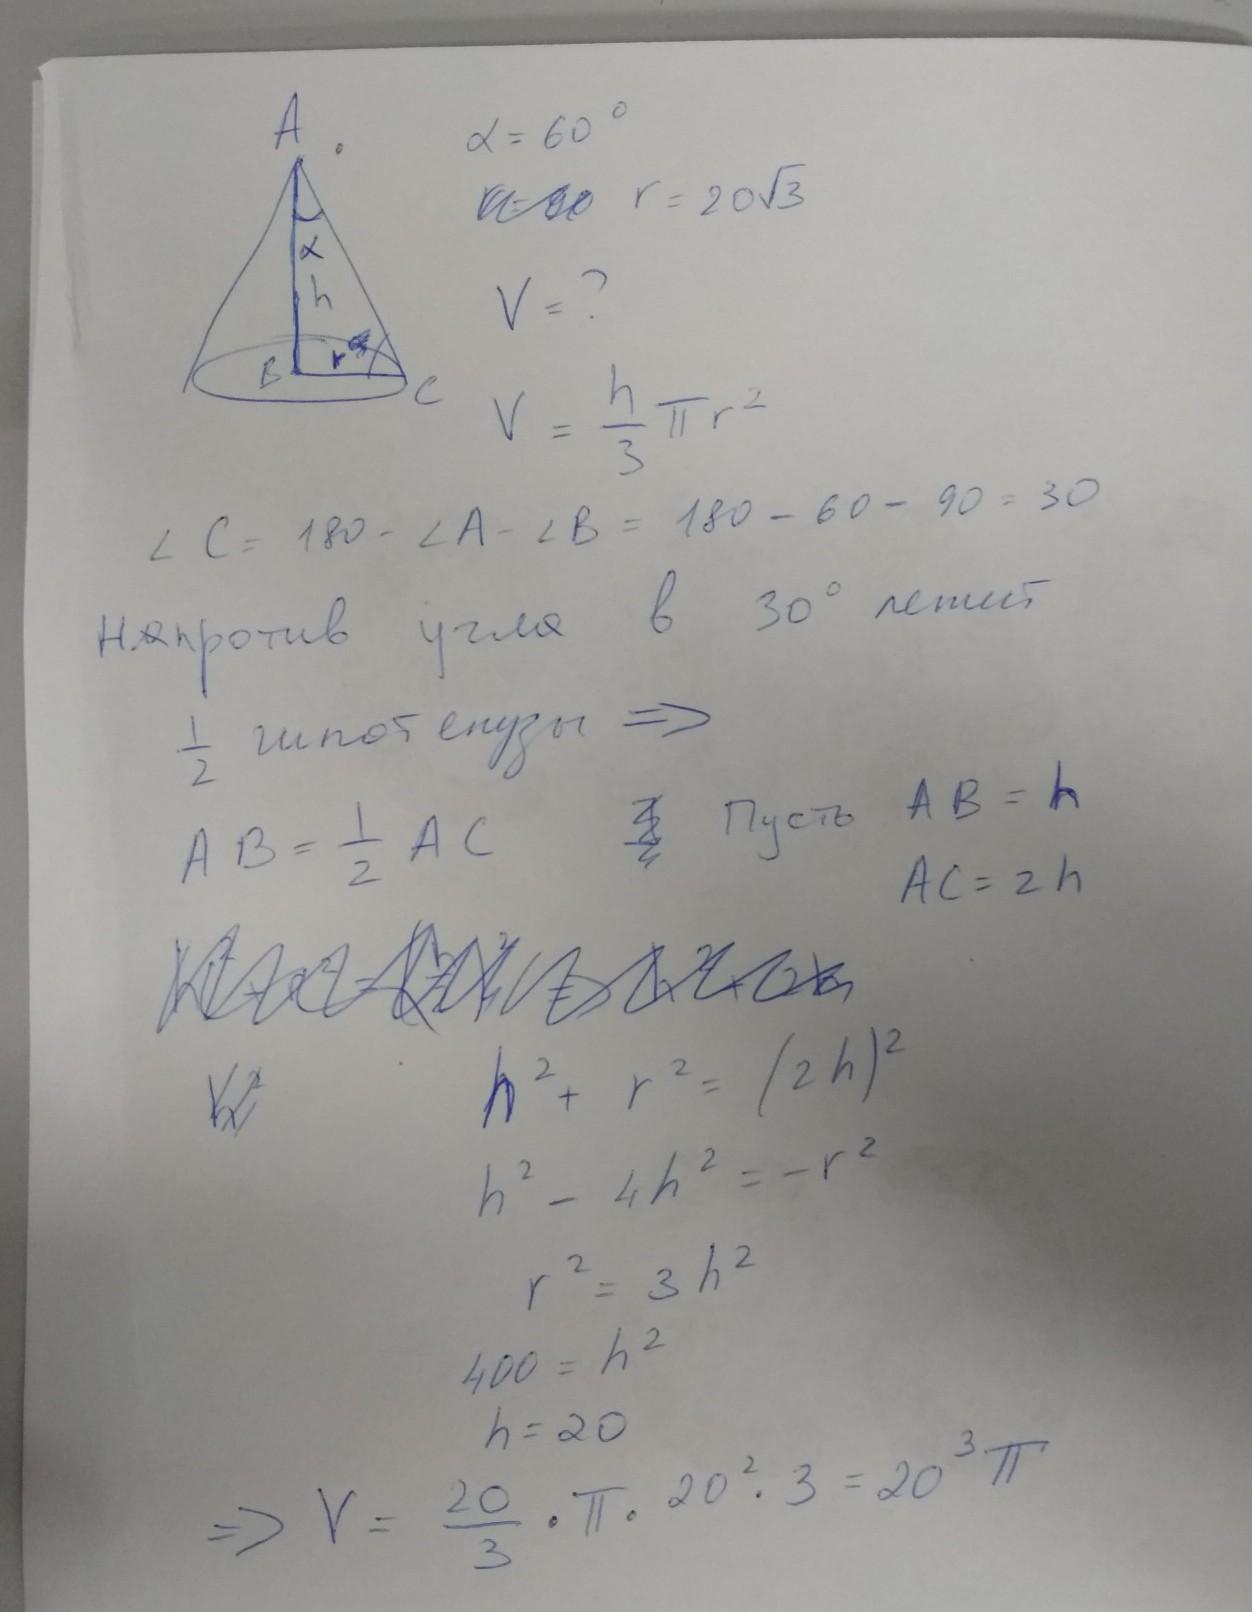 A
α = 60°
r = 20√3
α
h
V = ?
B r C
V = h/3 πr²
∠C = 180 - ∠A - ∠B = 180 - 60 - 90 = 30
Напротив угла в 30° лежит
1/2 гипотенузы =>
AB = 1/2 AC Пусть AB = h
AC = 2h
h² + r² = (2h)²
h² - 4h² = -r²
r² = 3h²
400 = h²
h = 20
=> V = 20/3 · π · 20² · 3 = 20³π